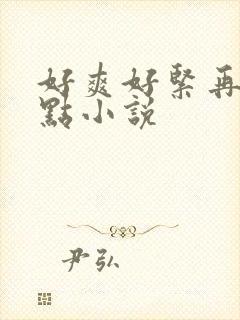 好爽好緊再
點小説
尹弘